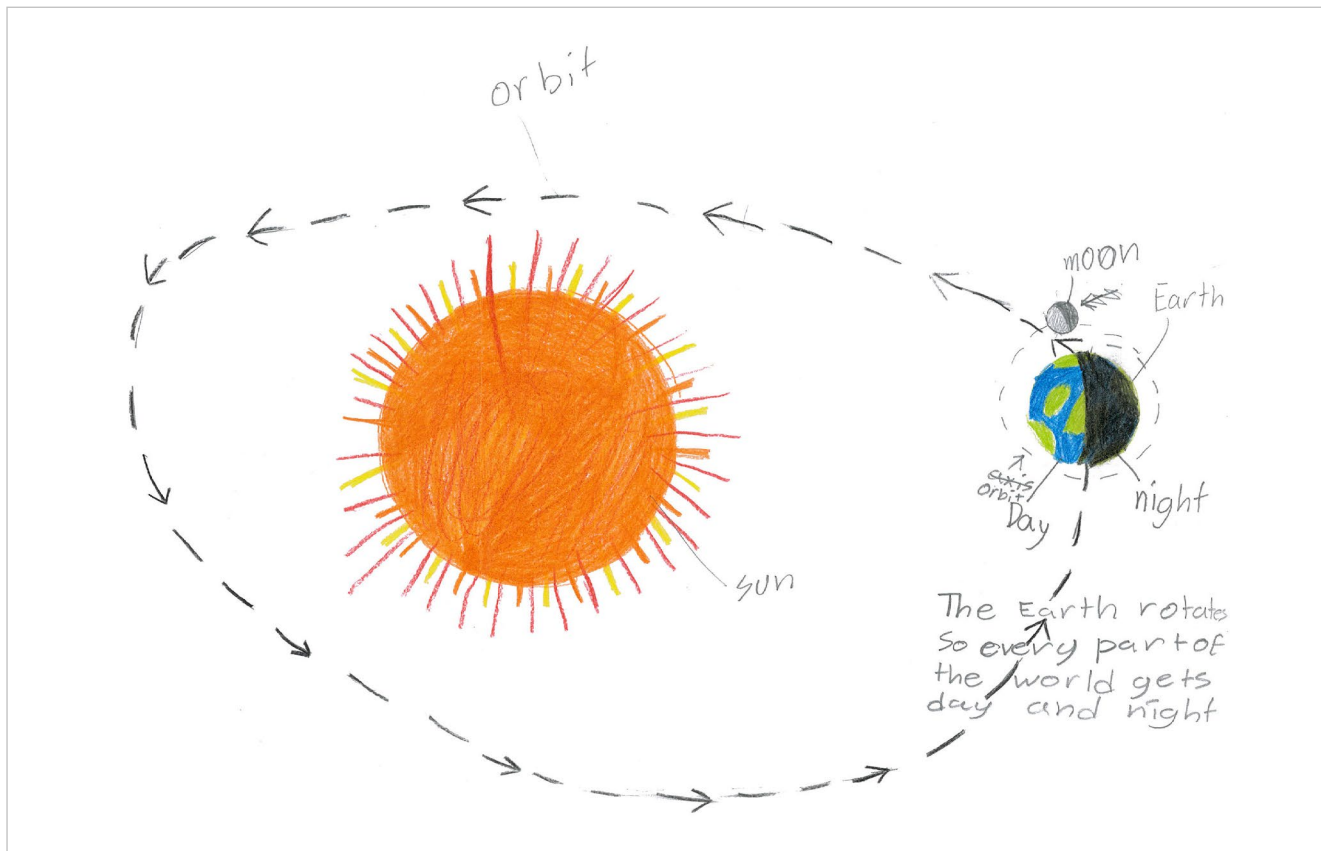 orbit
moon
Earth
axis
orbit
Day
night
sun
The Earth rotates
so every part of
the world gets
day and night